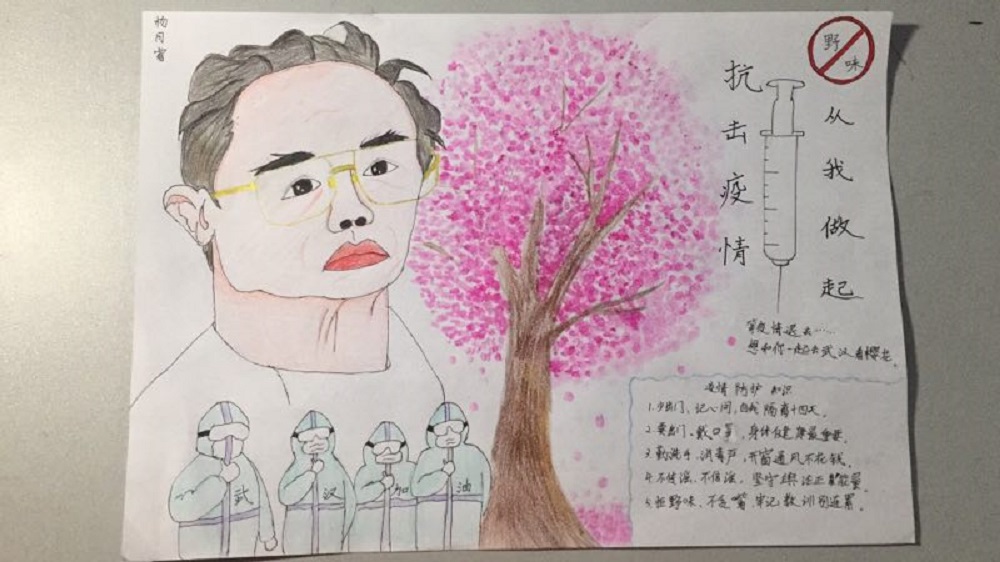 杨同富
野味
抗击疫情
从我做起
等疫情退去……
想和你一起去武汉看樱花。
疫情防护知识
1.少出门、记心间,自我隔离十四天。
2.要出门、戴口罩,身体健康最重要。
3.勤洗手、消毒户,开窗通风不花钱。
4.不传谣、不信谣,坚守
5.拒野味、不乱嘴,牢记教训别逞累。
武汉加油